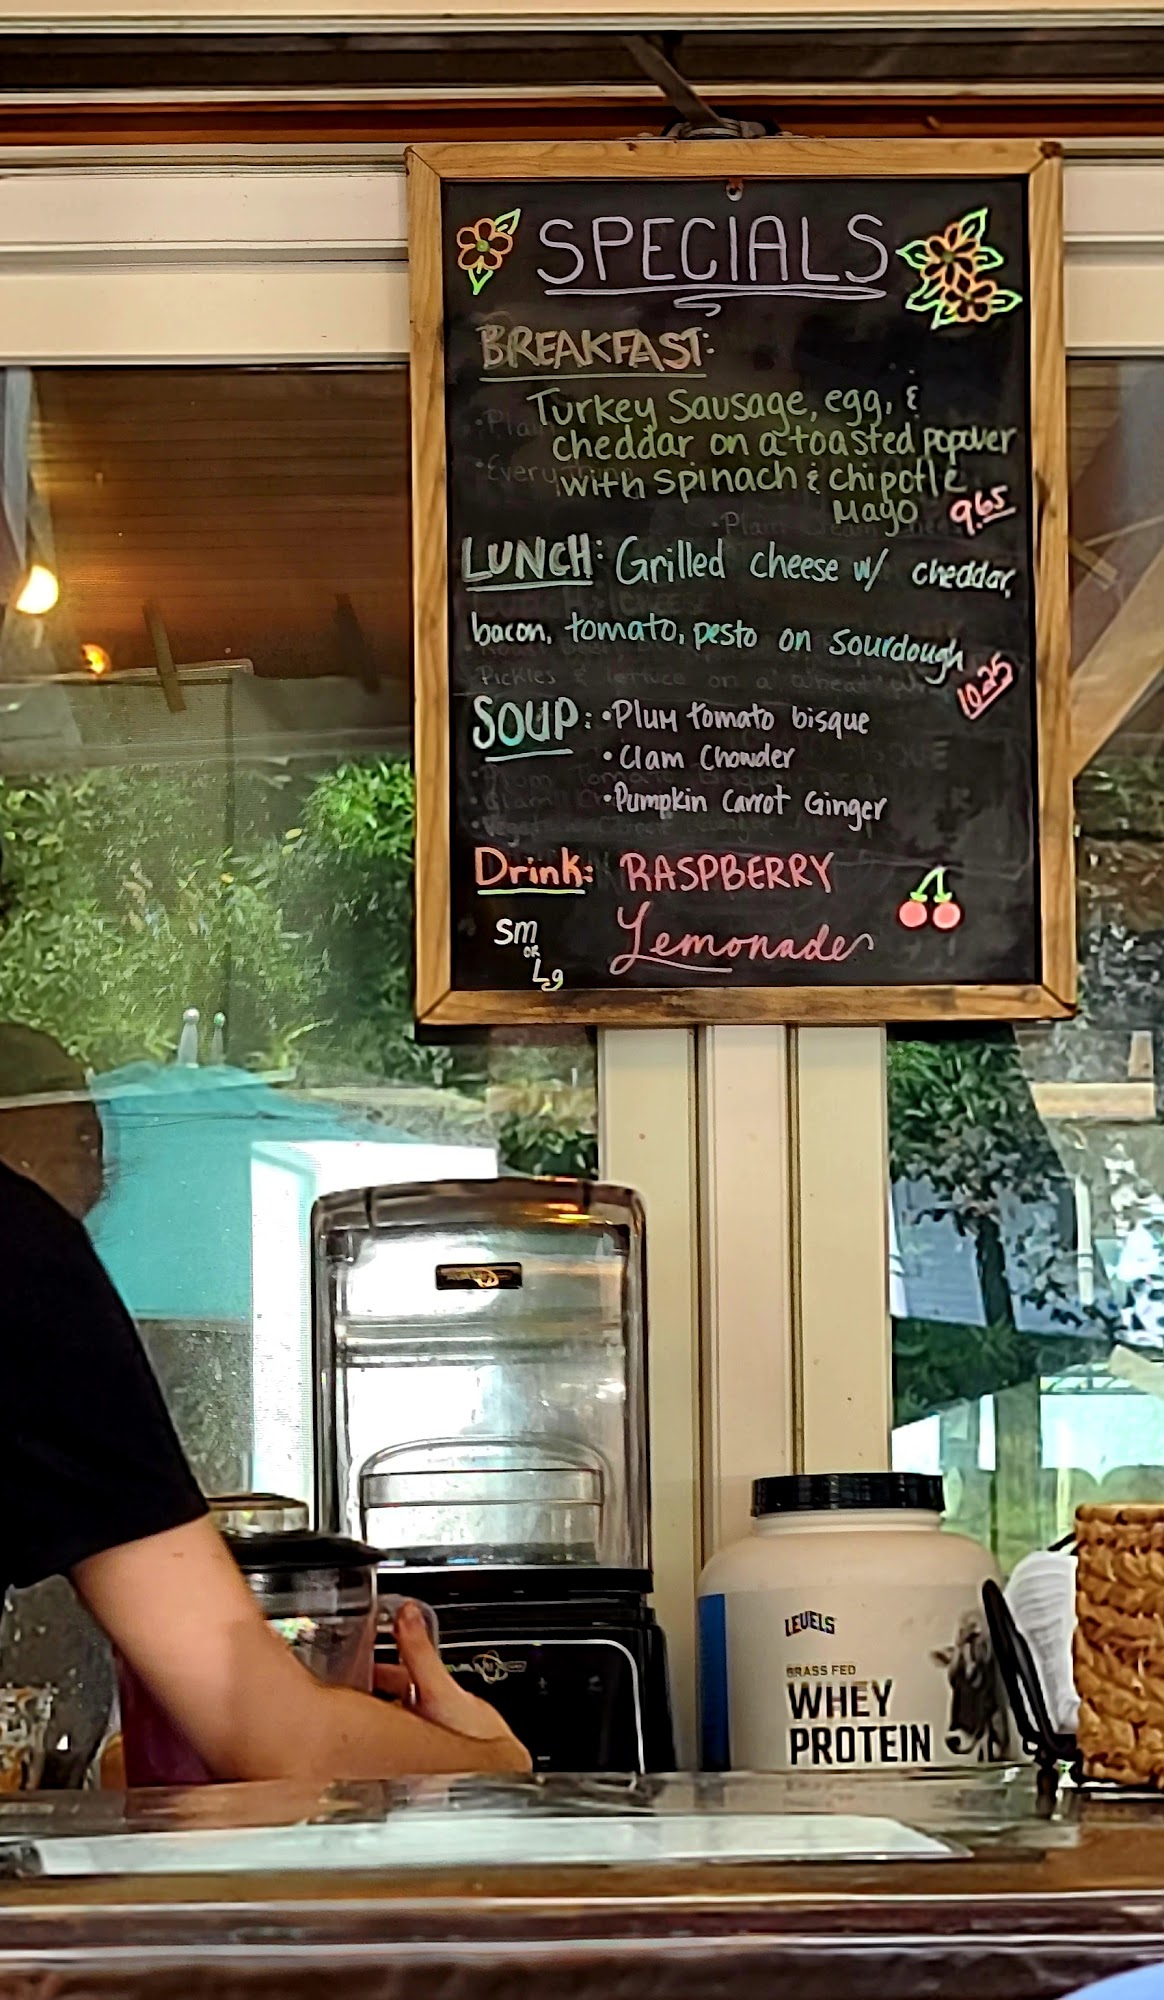 SPECIALS
BREAKFAST:
Turkey Sausage, egg, &
cheddar on a toasted popover
with spinach & chipotle
Mayo 9.65
LUNCH: Grilled cheese w/ cheddar,
bacon, tomato, pesto on sourdough
10.25
SOUP: • Plum tomato bisque
• Clam Chowder
• Pumpkin Carrot Ginger
Drink: RASPBERRY
Lemonade
Sm
OR
Lg
LEVELS
GRASS FED
WHEY
PROTEIN